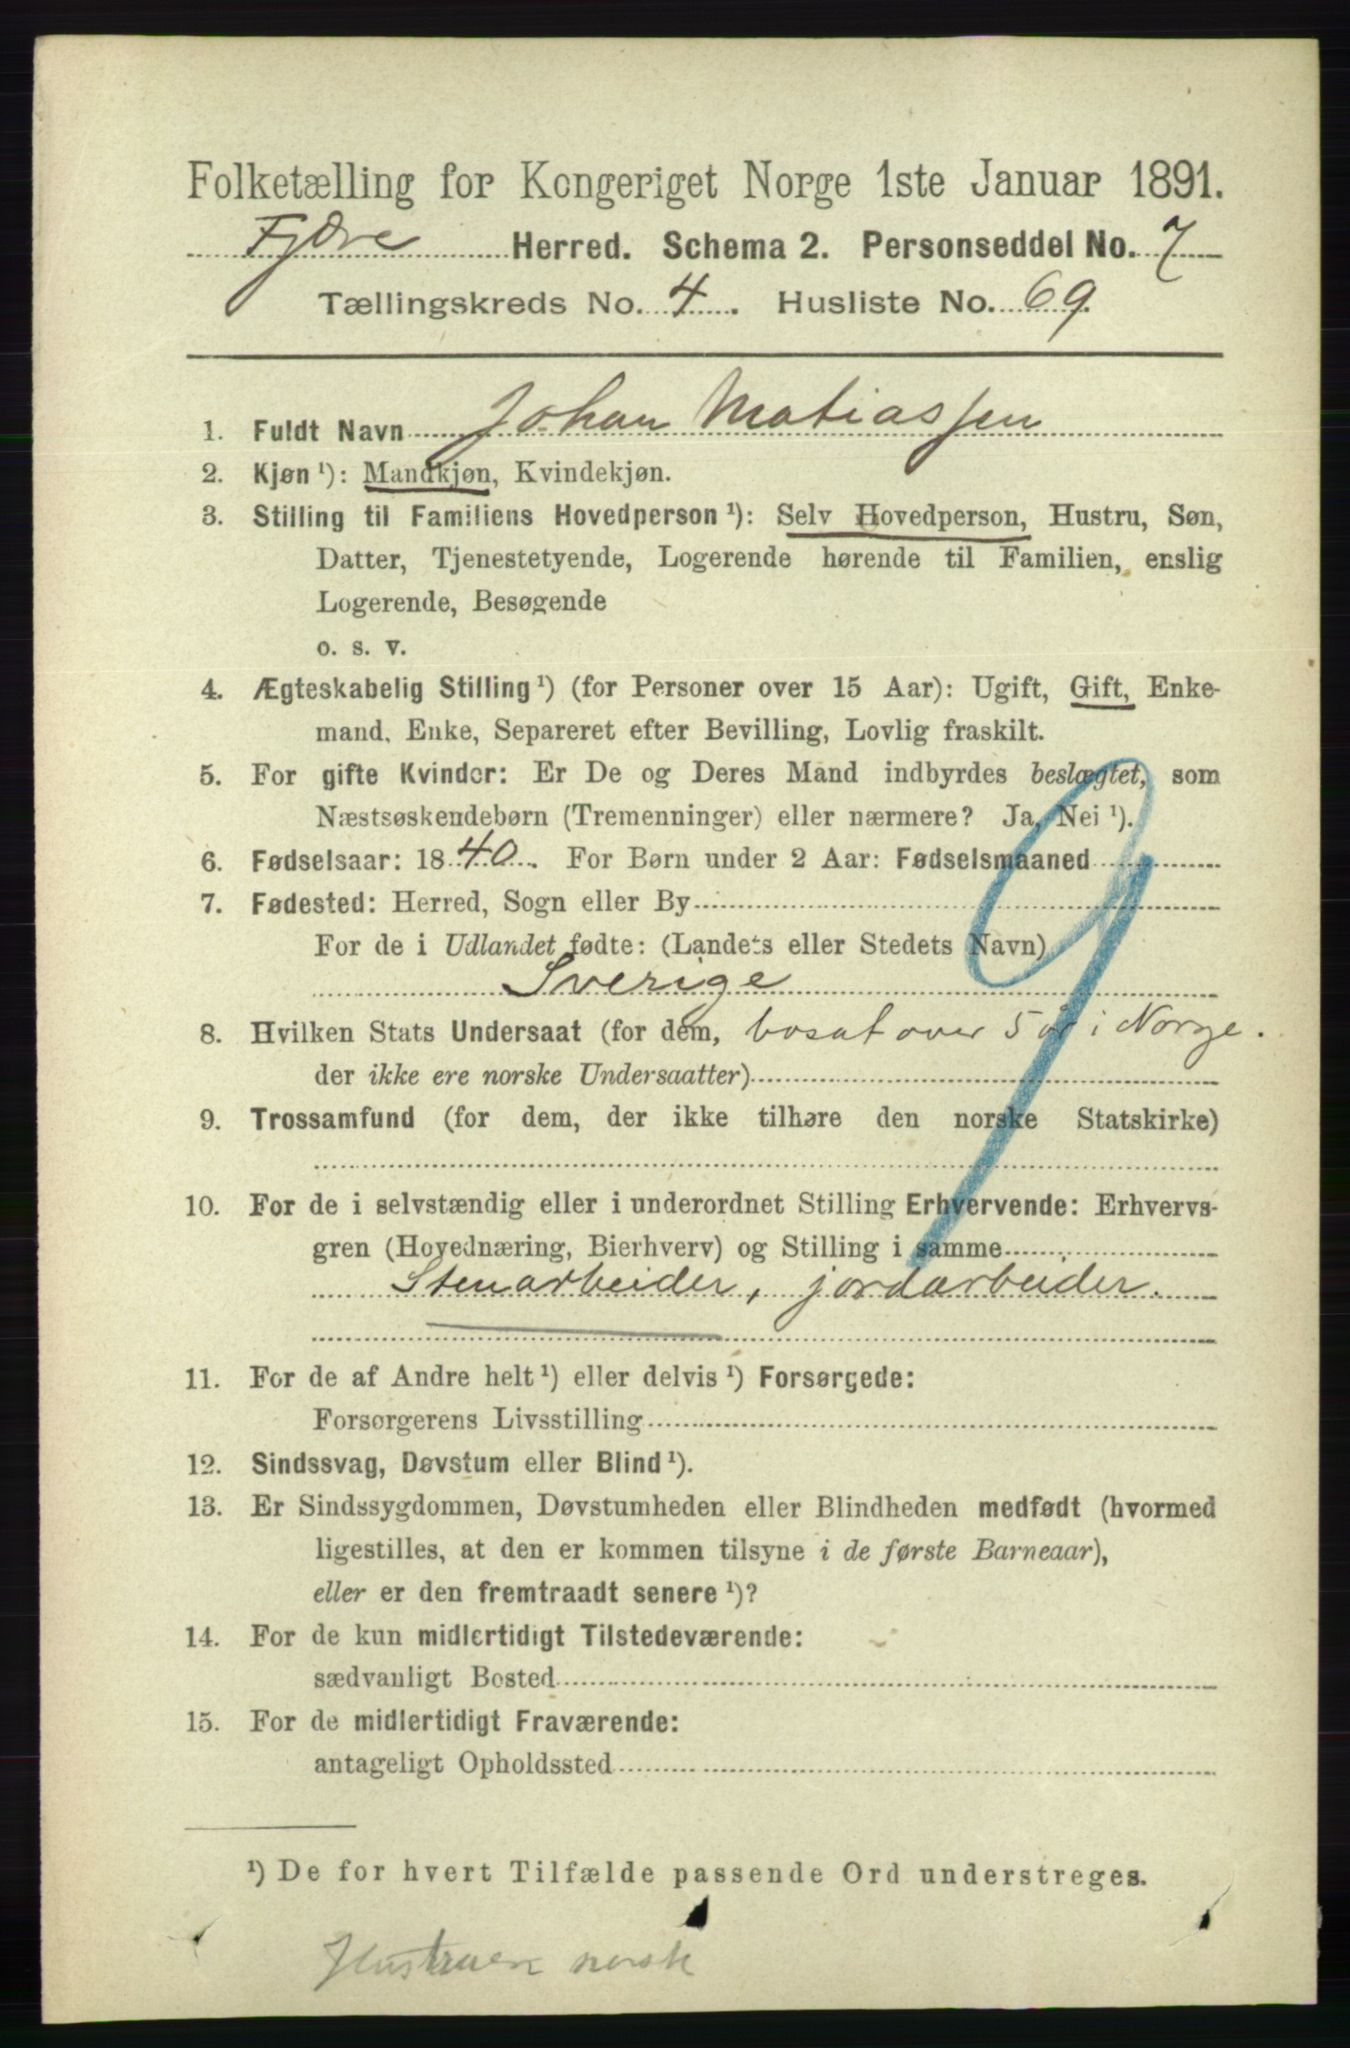 Folketælling for Kongeriget Norge 1ste Januar 1891.
Fjære Herred. Schema 2. Personseddel No. 7
Tællingskreds No. 4. Husliste No. 69.
1. Fuldt Navn Johan Matiassen
2. Kjøn ¹): Mandkjøn, Kvindekjøn.
3. Stilling til Familiens Hovedperson ¹): Selv Hovedperson, Hustru, Søn,
Datter, Tjenestetyende, Logerende hørende til Familien, enslig
Logerende, Besøgende
o. s. v.
4. Ægteskabelig Stilling ¹) (for Personer over 15 Aar): Ugift, Gift, Enke-
mand, Enke, Separeret efter Bevilling, Lovlig fraskilt.
5. For gifte Kvinder: Er De og Deres Mand indbyrdes beslægtet, som
Næstsøskendebørn (Tremenninger) eller nærmere? Ja, Nei ¹).
6. Fødselsaar: 1840. For Børn under 2 Aar: Fødselsmaaned
7. Fødested: Herred, Sogn eller By
For de i Udlandet fødte: (Landets eller Stedets Navn)
Sverige
8. Hvilken Stats Undersaat (for dem, bosat over 5 år i Norge.
der ikke ere norske Undersaatter)
9. Trossamfund (for dem, der ikke tilhøre den norske Statskirke)
10. For de i selvstændig eller i underordnet Stilling Erhvervende: Erhvervs-
gren (Hovednæring, Bierhverv) og Stilling i samme
Stenarbeider, jordarbeider.
11. For de af Andre helt ¹) eller delvis ¹) Forsørgede:
Forsørgerens Livsstilling
12. Sindssvag, Døvstum eller Blind ¹).
13. Er Sindssygdommen, Døvstumheden eller Blindheden medfødt (hvormed
ligestilles, at den er kommen tilsyne i de første Barneaar),
eller er den fremtraadt senere ¹)?
14. For de kun midlertidigt Tilstedeværende:
sædvanligt Bosted
15. For de midlertidigt Fraværende:
antageligt Opholdssted
¹) De for hvert Tilfælde passende Ord understreges.
Hustruen norsk
9